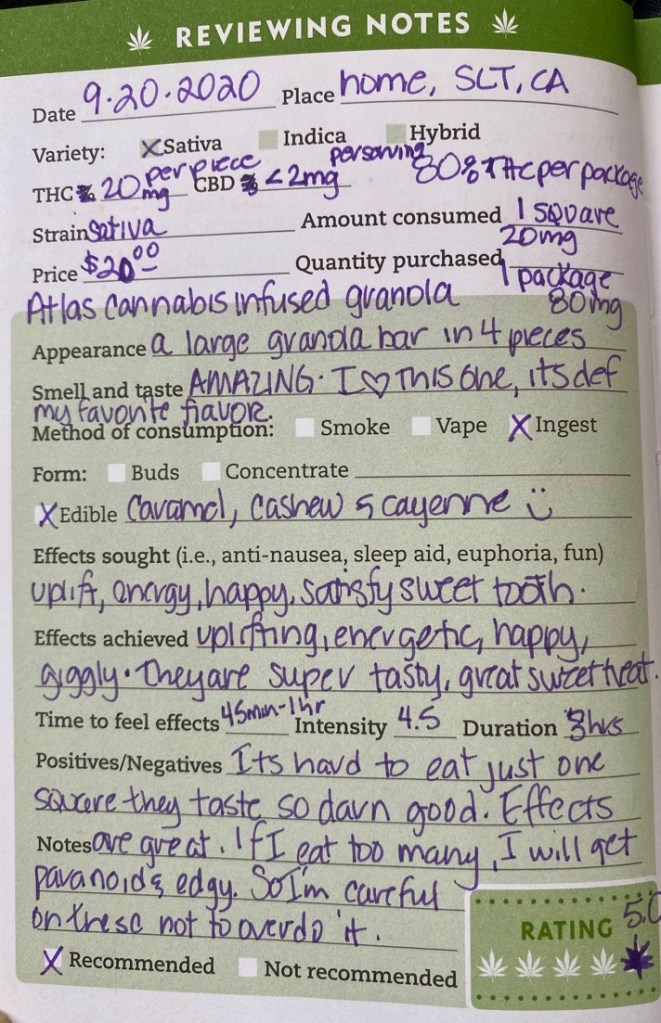 REVIEWING NOTES
Date 9.20.2020 Place home, SLT, CA
Variety: X Sativa Indica Hybrid
THC % 20mg per piece CBD % <2mg per serving 80% THC per package
Strain sativa Amount consumed 1 square 20mg
Price $20.00 Quantity purchased 1 package 80mg
Atlas cannabis infused granola
Appearance a large granola bar in 4 pieces
Smell and taste AMAZING. I ♡ This one, its def
my favorite flavor.
Method of consumption: Smoke Vape X Ingest
Form: Buds Concentrate
X Edible Caramel, cashew & cayenne
Effects sought (i.e., anti-nausea, sleep aid, euphoria, fun)
uplift, energy, happy, satisfy sweet tooth.
Effects achieved uplifting, energetic, happy,
giggly. They are super tasty, great sweet treat.
Time to feel effects 45min-1hr Intensity 4.5 Duration 3hrs
Positives/Negatives Its hard to eat just one
square they taste so darn good. Effects
Notes are great. If I eat too many, I will get
paranoid & edgy. So I'm careful
on these not to overdo it.
RATING 5.0
X Recommended Not recommended